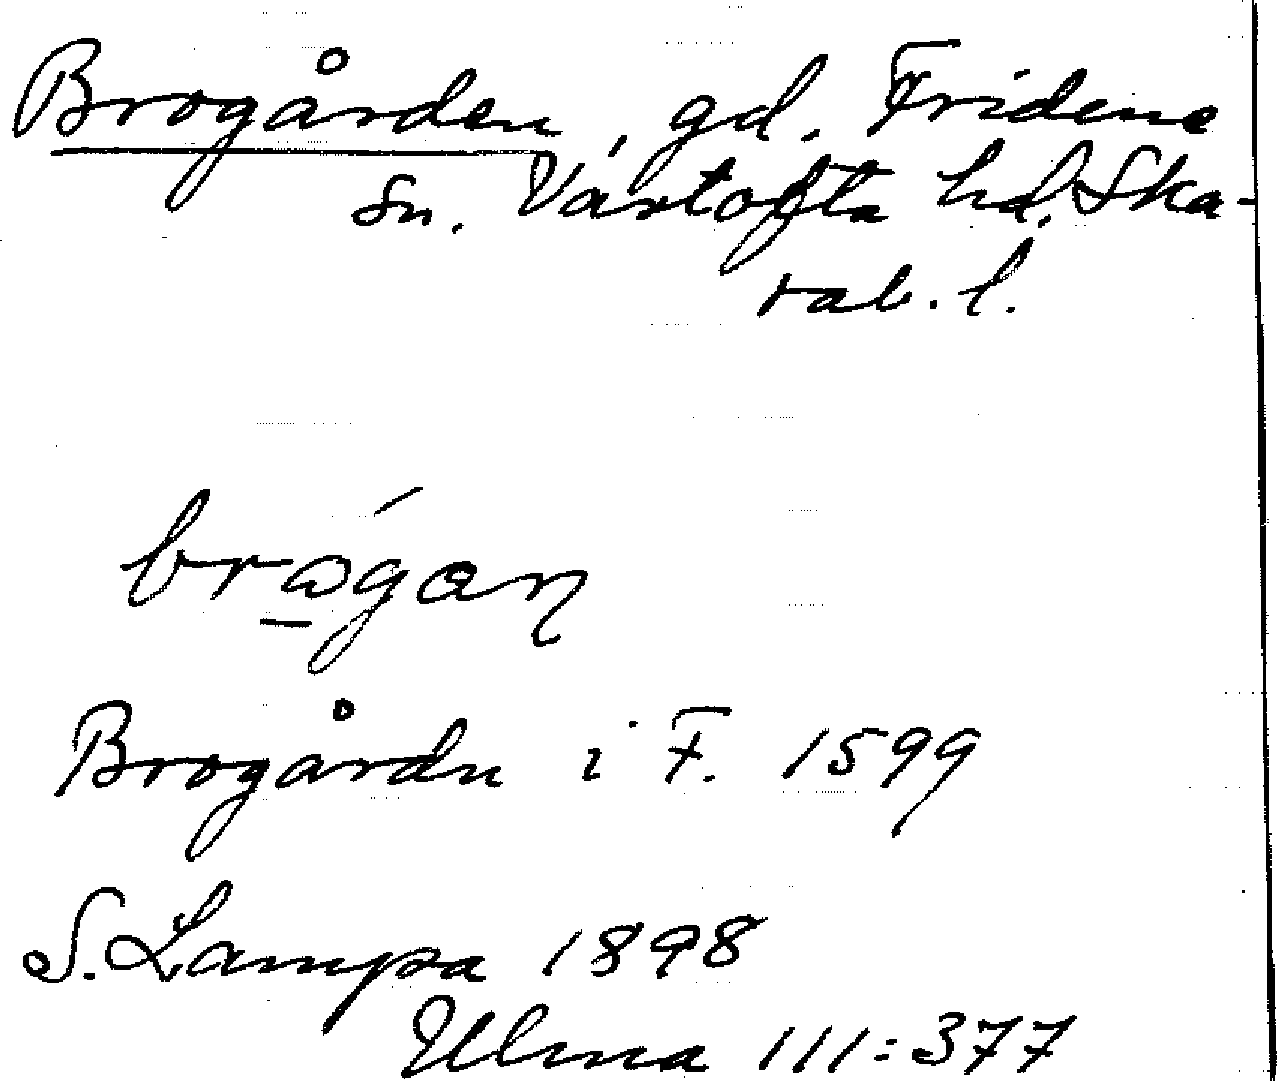 Brogården, gd. Fridene
sn. Vartofta hd. Ska-
rab. l.
brώ̲gaɳ
Brogårdn i F. 1599
S. Lampa 1898
Ulma 111:377